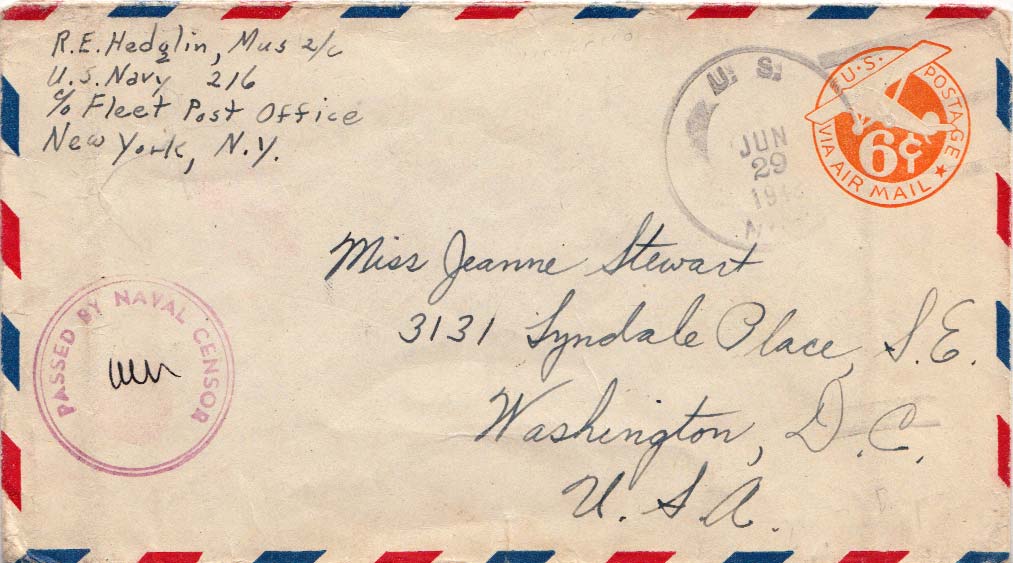 R.E. Hedglin, Mus 2/c
U.S. Navy 216
c/o Fleet Post Office
New York, N.Y.
U. S.
JUN
29
U.S. POSTAGE
6¢
VIA AIR MAIL
Miss Jeanne Stewart
3131 Lyndale Place, S.E.
Washington, D.C.
U.S.A.
PASSED BY NAVAL CENSOR